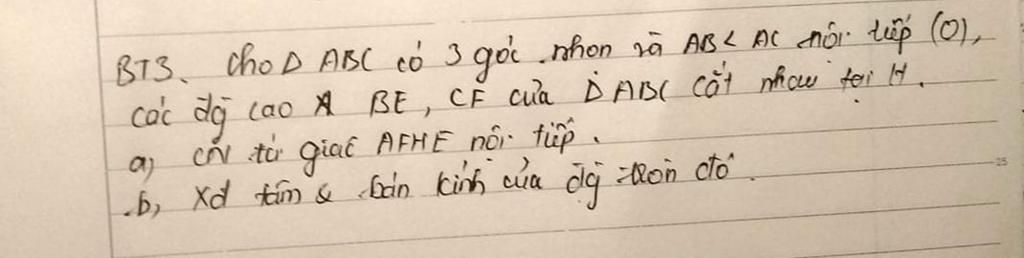 BT3. Cho Δ ABC có 3 góc nhọn và AB < AC nội tiếp (O),
các đg̃ cao BE, CF của Δ ABC cắt nhau tại H.
a, CM tứ giác AFHE nội tiếp.
b, Xđ tâm & bán kính của đg̃ tròn đó.
25